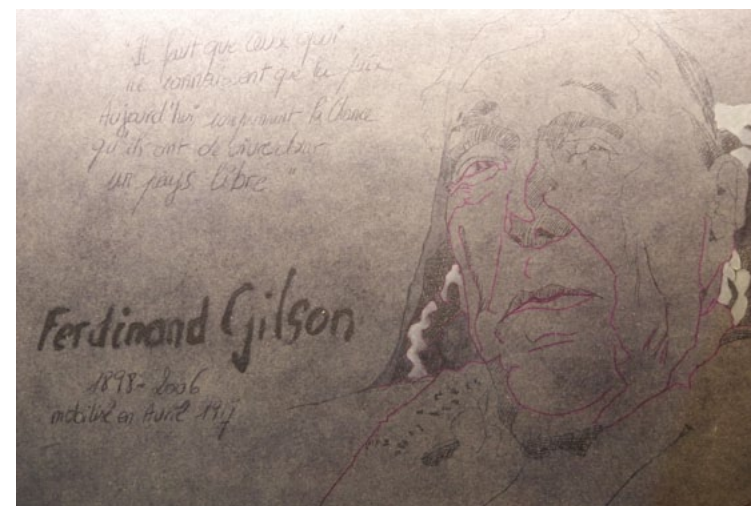 "Il faut que ceux qui
ne connaissent que la paix
Aujourd'hui comprennent la chance
qu'ils ont de vivre dans
un pays libre"
Ferdinand Gilson
1898-2006
mobilisé en Avril 1917